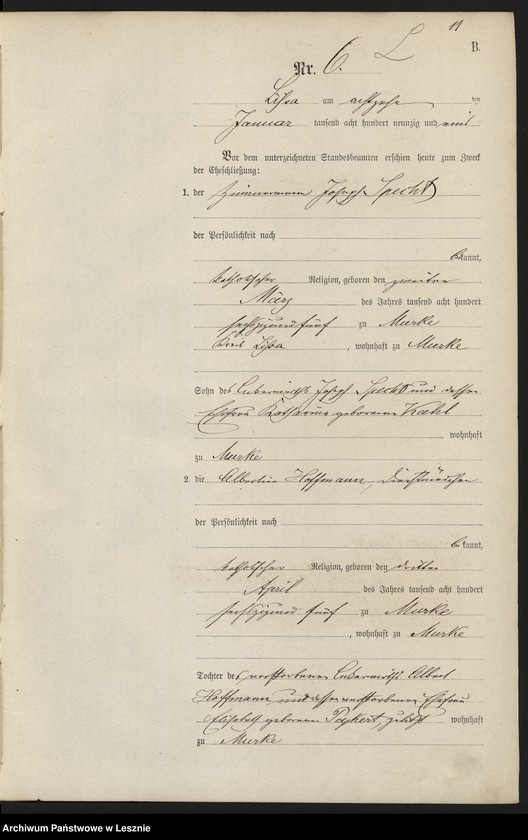 11
B.
Nr. 6.
Lissa am achtzehn ten
Januar tausend acht hundert neunzig und ein
Vor dem unterzeichneten Standesbeamten erschien heute zum Zweck
der Eheschließung:
1. der Zimmermann Joseph Specht
der Persönlichkeit nach
bekannt,
katholischer Religion, geboren den zweiten
März des Jahres tausend acht hundert
sechszig und fünf zu Murke
Kreis Lissa, wohnhaft zu Murke
Sohn des Joseph Specht und dessen
Ehefrau Katharina geborenen Kahl
wohnhaft
zu Murke
2. die Albertine Hoffmann, Dienstmädchen
der Persönlichkeit nach
bekannt,
katholischer Religion, geboren den dritten
April des Jahres tausend acht hundert
sechszig und fünf zu Murke
, wohnhaft zu Murke
Tochter des verstorbenen Albert
Hoffmann und dessen verstorbenen Ehefrau
Elisabeth geborenen zuletzt wohnhaft
zu Murke
Archiwum Państwowe w Lesznie